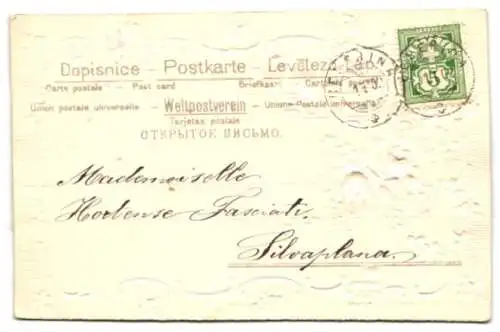 Dopisnice - Postkarte - Levelező-Lap.
Carte postale - Post card - Briefkaart - Cartolina postale
Union postale universelle - Weltpostverein - Unione Postale universale
Tarjetas postale
ОТКРЫТОЕ ПИСЬМО.
Mademoiselle
Hortense Fasciati.
Silvaplana.
5